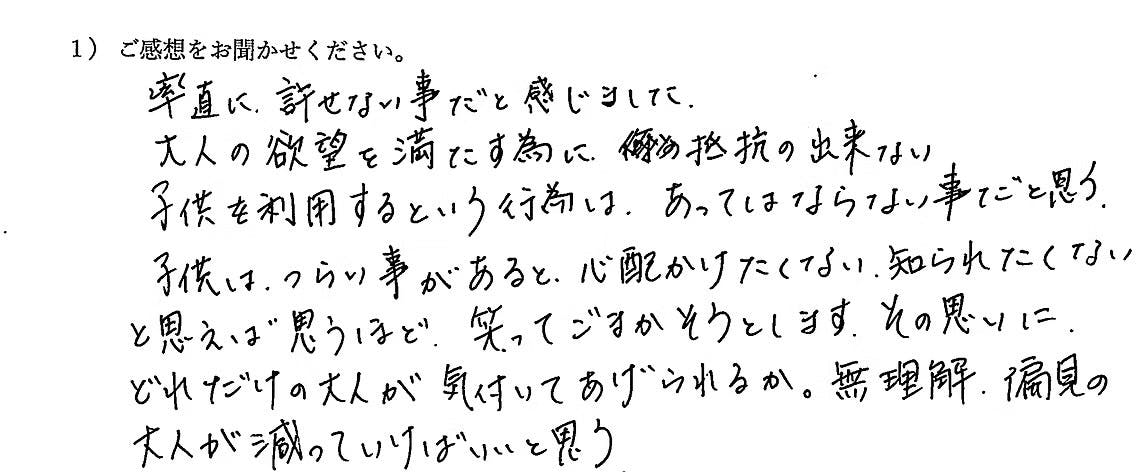 1) ご感想をお聞かせください。
率直に、許せない事だと感じました。
大人の欲望を満たす為に、抵抗の出来ない
子供を利用するという行為は、あってはならない事だと思う。
子供は、つらい事があると、心配かけたくない、知られたくない
と思えば思うほど、笑ってごまかそうとします。その思いに、
どれだけの大人が気付いてあげられるか。無理解、偏見の
大人が減っていけばいいと思う